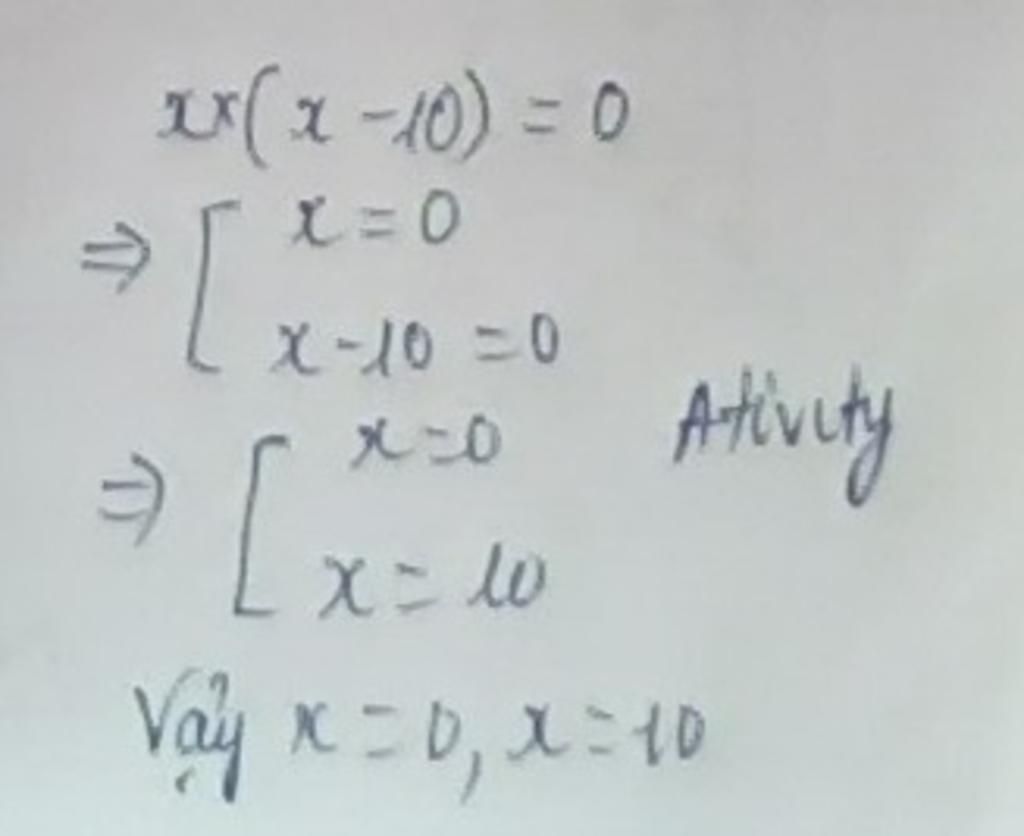 x×(x-10)=0
⇒ [ x=0
x-10=0
⇒ [ x=0
Ativity
x=10
Vậy x=0, x=10